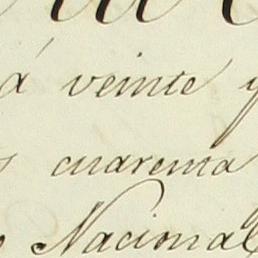 á veinte y
cuarenta
Nacional